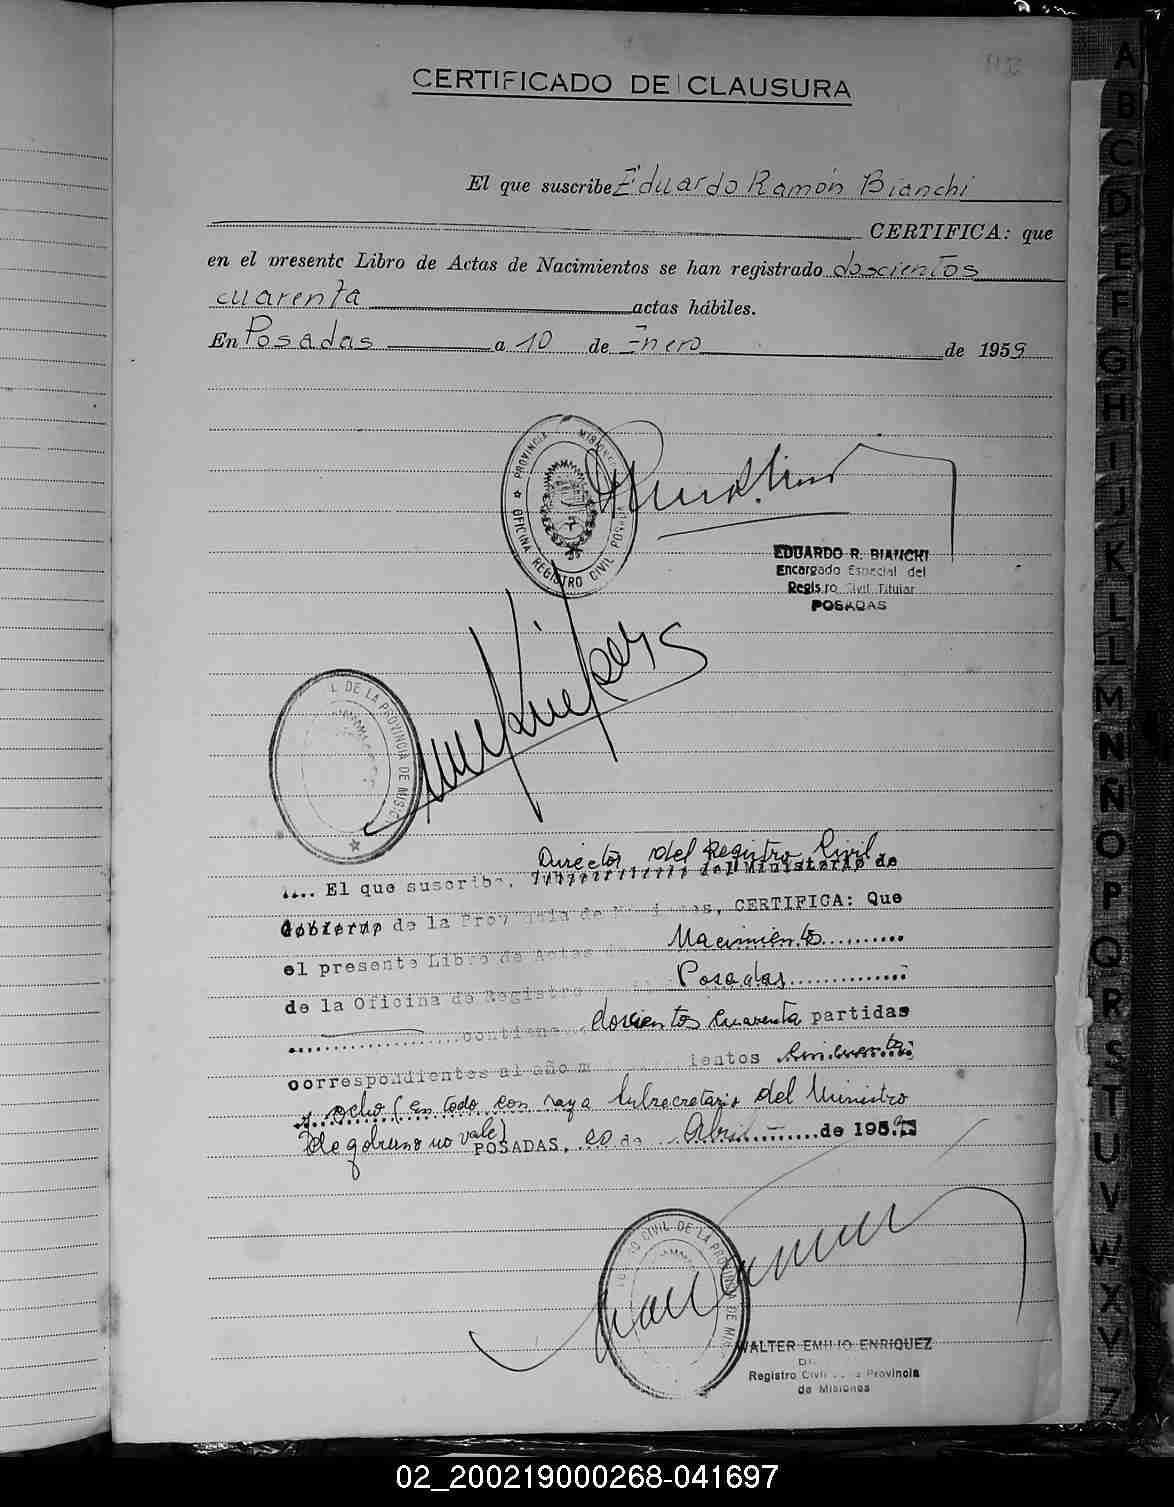 CERTIFICADO DE CLAUSURA
El que suscribe Eduardo Ramón Bianchi
CERTIFICA: que
en el presente Libro de Actas de Nacimientos se han registrado doscientos
cuarenta actas hábiles.
En Posadas a 10 de Enero de 1959
PROVINCIA MISIONES
OFICINA REGISTRO CIVIL POSADAS
EDUARDO R. BIANCHI
Encargado Especial del
Registro Civil Titular
POSADAS
L DE LA PROVINCIA DE MISIO
Director del Registro Civil
.... El que suscribe, del Ministerio de
Gobierno de la Provincia de Misiones, CERTIFICA: Que
el presente Libro de Actas de Nacimientos..........
de la Oficina de Registro Posadas...............
contiene doscientos cuarenta partidas
correspondientes al año m ientos cincuenta
y ocho (en todo con raya Subsecretario del Ministro
de gobierno no vale)
POSADAS, 20 de Abril de 1959
RO CIVIL DE LA PROVINCIA DE MIS
WALTER EMILIO ENRIQUEZ
Registro Civil de la Provincia
de Misiones
A
B
C
D
E
F
G
H
I
J
K
L
LL
M
N
Ñ
O
P
Q
R
S
T
U
V
W
X
Y
Z
02_200219000268-041697